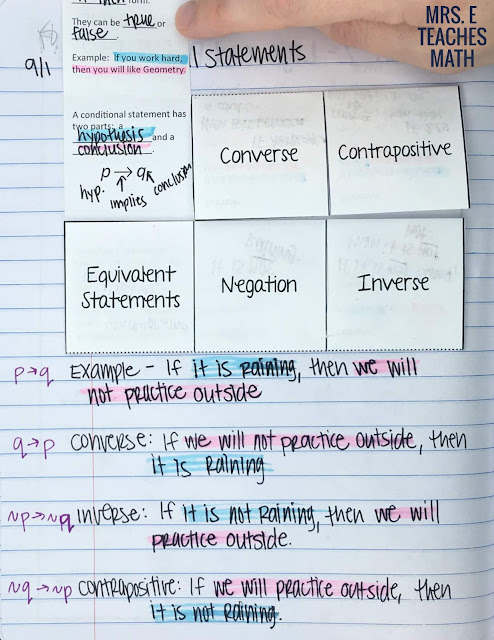 form.
They can be true or
false.
Example: If you work hard,
then you will like Geometry.
A conditional statement has
two parts: a
hypothesis and a
conclusion.
p → q
hyp. implies conclusion
9/1
l Statements
MRS. E
TEACHES
MATH
Converse
Contrapositive
Equivalent
Statements
Negation
Inverse
p→q Example - If it is raining, then we will
not practice outside
q→p converse: If we will not practice outside, then
it is raining
~p→~q inverse: If it is not raining, then we will
practice outside.
~q→~p contrapositive: If we will practice outside, then
it is not raining.